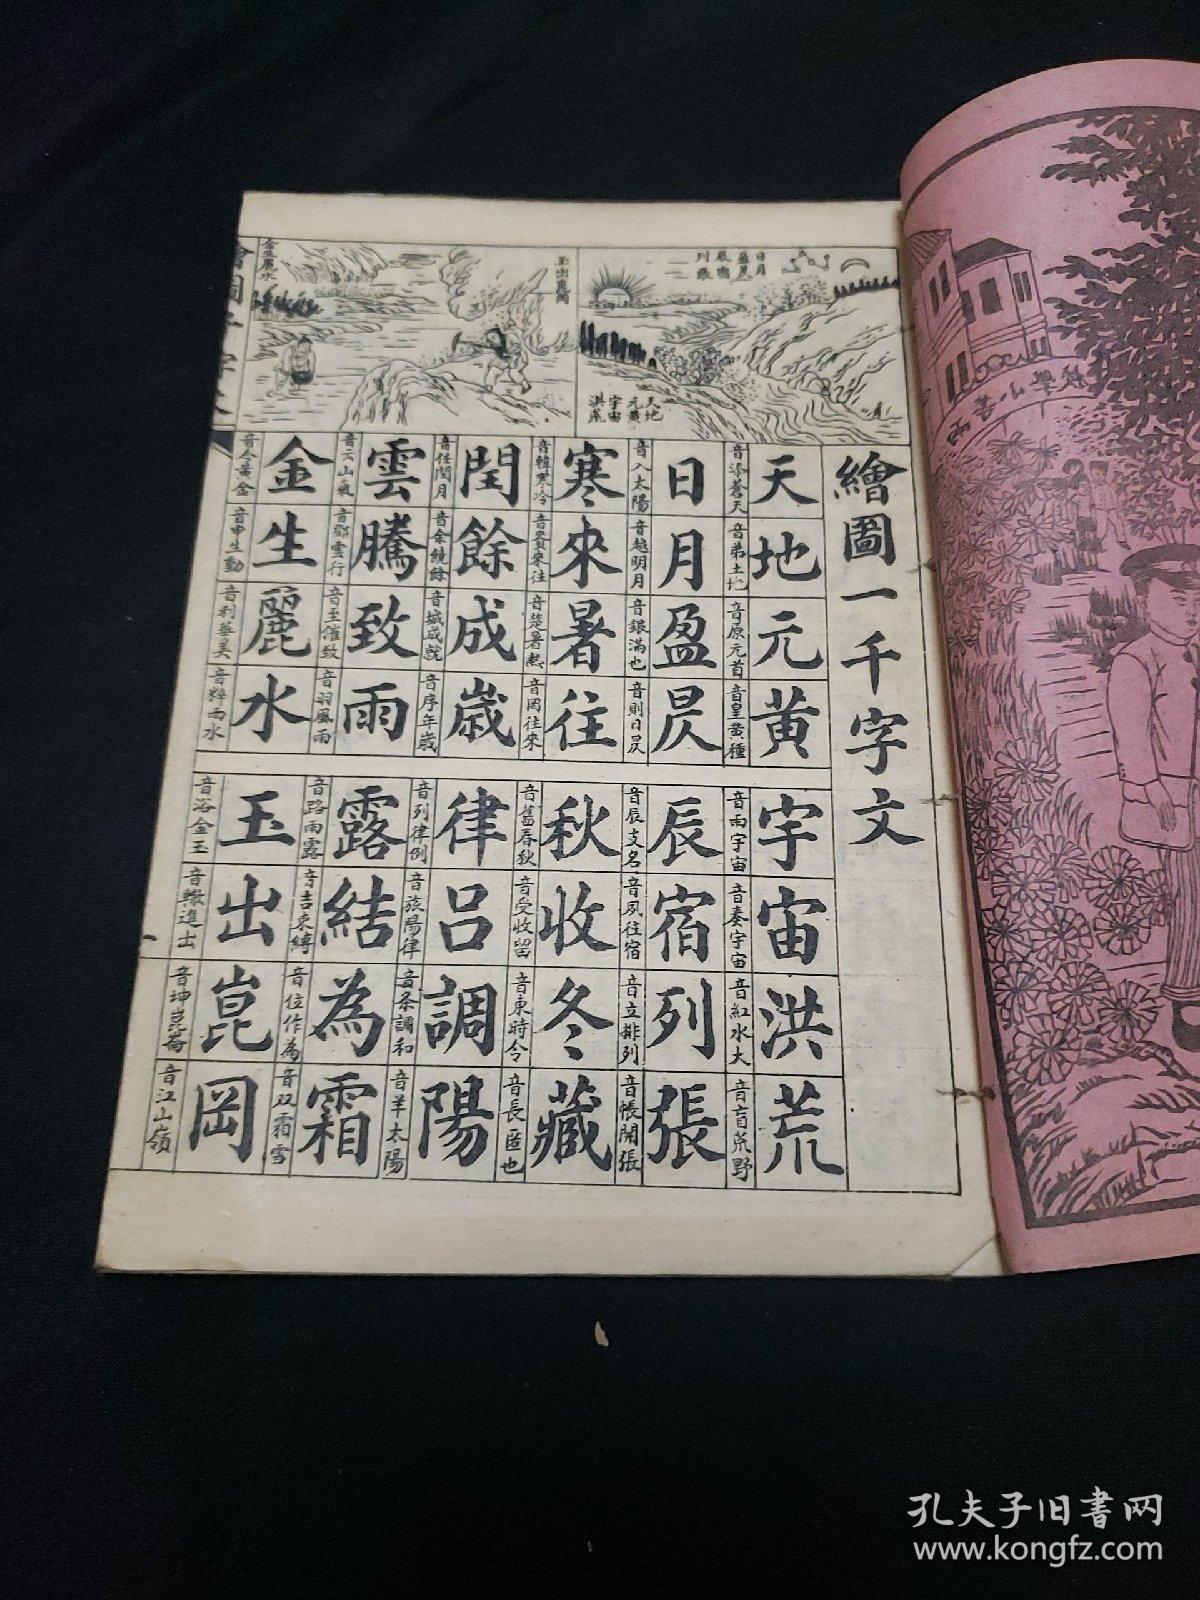 繪圖一千字文
天地元黃
宇宙洪荒
日月盈昃
辰宿列張
寒來暑往
秋收冬藏
閏餘成歲
律呂調陽
雲騰致雨
露結為霜
金生麗水
玉出崑岡
音添蒼天
音弟土地
音原元首
音皇黃種
音雨宇宙
音奏宇宙
音紅水大
音盲荒野
音入太陽
音越明月
音銀滿也
音則日昃
音辰支名
音夙住宿
音立排列
音悵開張
音韓寒冷
音楚暑熱
音罔往來
音舊春秋
音受收留
音東時令
音長匿也
音任閏月
音余饒餘
音城成就
音序年歲
音列律例
音旅陽律
音条調和
音羊太陽
音云山氣
音鄧雲行
音至催致
音羽風雨
音路雨露
音吉束縛
音位作為
音双霜雪
音今黃金
音申生動
音利華美
音浴金玉
音轍進出
音坤崑崙
音江山嶺
日月
盈昃
辰宿
列張
天地
元黃
宇宙
洪荒
玉出崑岡
金生麗水
孔夫子旧書网
www.kongfz.com